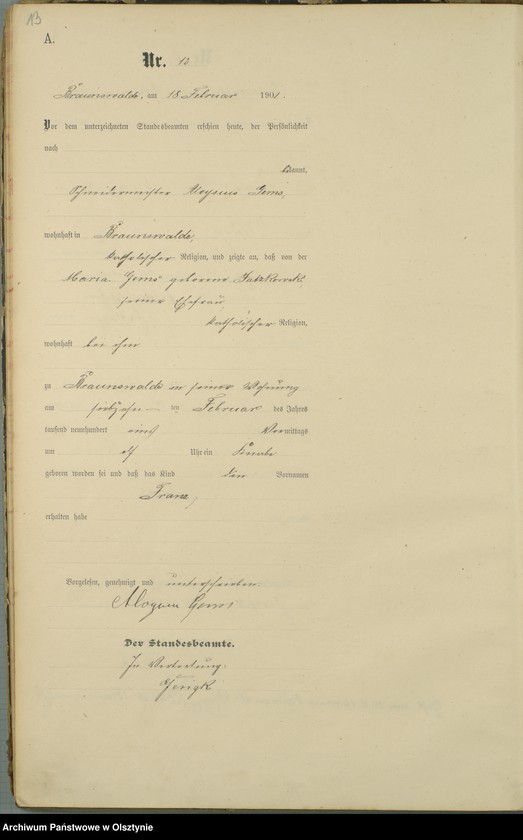 13
A.
Nr. 12
Braunswalde, am 18 Februar 1901.
Vor dem unterzeichneten Standesbeamten erschien heute, der Persönlichkeit
nach
kannt,
Schneidermeister Aloysius Gems,
wohnhaft in Braunswalde,
katholischer Religion, und zeigte an, daß von der
Maria Gems geborene
seiner Ehefrau
katholischer Religion,
wohnhaft bei ihm
zu Braunswalde in seiner Wohnung
am siebzehn ten Februar des Jahres
tausend neunhundert eins Vormittags
um elf Uhr ein Knabe
geboren worden sei und daß das Kind den Vornamen
Franz,
erhalten habe
Vorgelesen, genehmigt und unterschrieben.
Aloysius Gems
Der Standesbeamte.
In Vertretung.
Jerigk
Archiwum Państwowe w Olsztynie